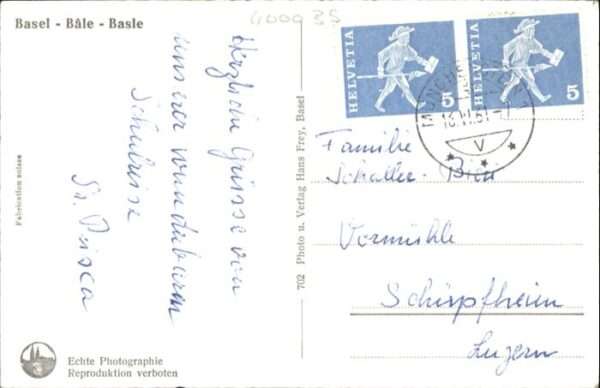 Basel - Bâle - Basle
400035
Herzliche Grüsse von
unserer wunderbaren
Schulreise
Sr. Prisca
Fabrication suisse
702 Photo u. Verlag Hans Frey, Basel
HELVETIA 5
HELVETIA 5
V
Familie
Schaller-
Vormühle
Schüpfheim
Luzern
Echte Photographie
Reproduktion verboten